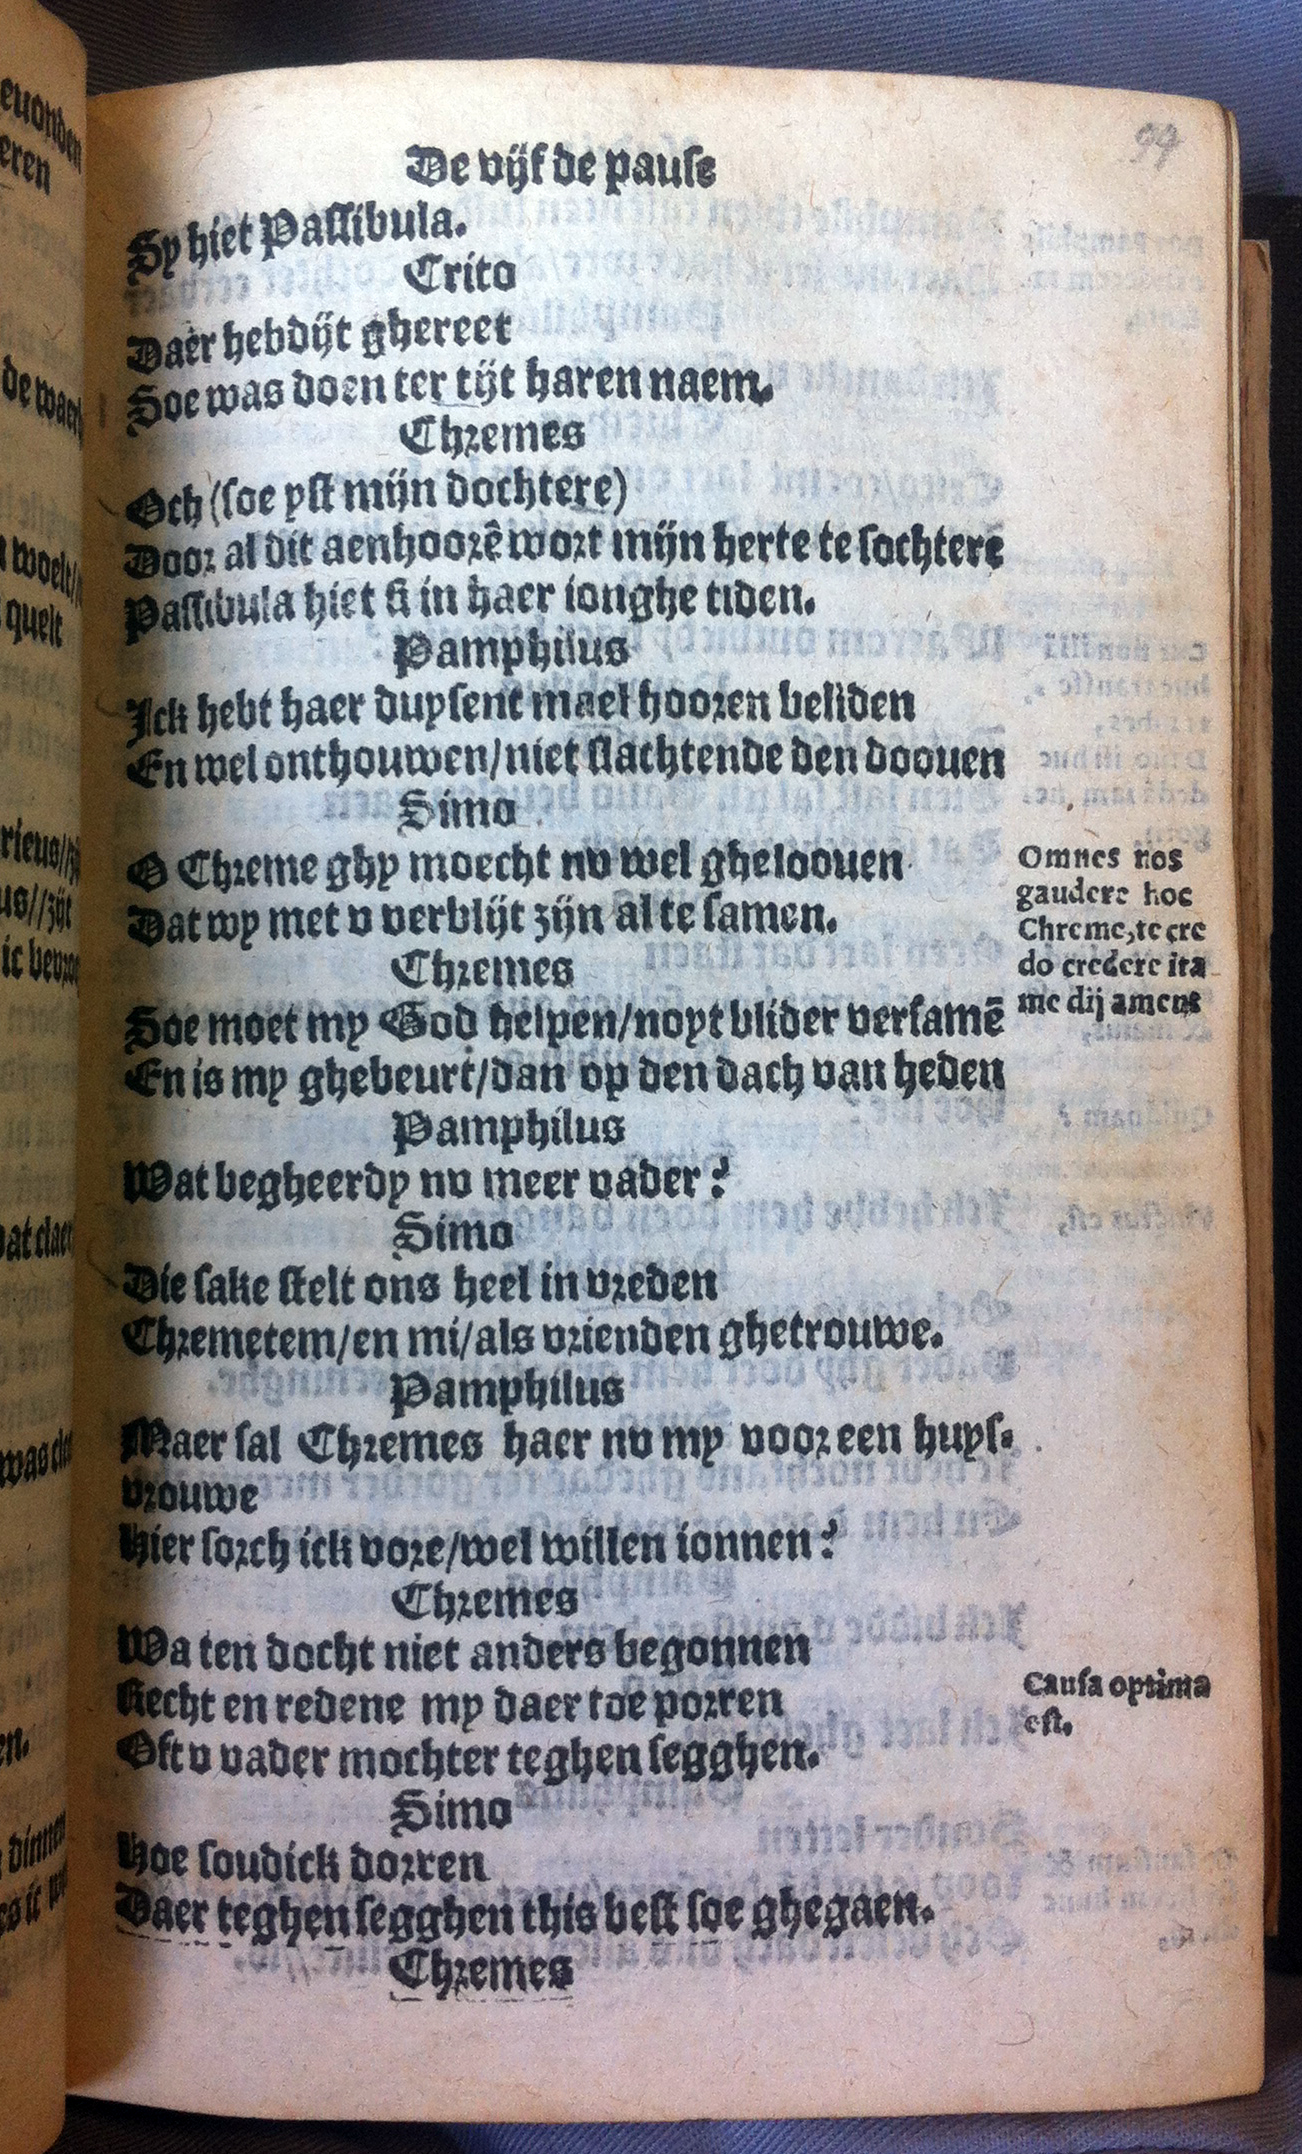 99
De vijfde pause
Sy hiet Passibula.
Crito
Daer hebdijt ghereet
Soe was doen ter tijt haren naem.
Chremes
Och (soe yst mijn dochtere)
Door al dit aenhoorē wort mijn herte te sochtere
Passibula hiet si in haer ionghe tiden.
Pamphilus
Ick hebt haer duysent mael hooren beliden
En wel onthouwen/niet slachtende den doouen
Simo
O Chreme ghy moecht nv wel gheloouen
Dat wy met v verblijt zijn al te samen.
Omnes nos
gaudere hoc
Chreme, te cre
do credere ita
me dij ament
Chremes
Soe moet my God helpen/noyt blider versamē
En is my ghebeurt/dan op den dach van heden
Pamphilus
Wat begheerdy nv meer vader?
Simo
Die sake stelt ons heel in vreden
Chremetem/en mi/als vrienden ghetrouwe.
Pamphilus
Maer sal Chremes haer nv my voor een huys-
vrouwe
Hier sorch ick vore/wel willen ionnen?
Chremes
Wa ten docht niet anders begonnen
Recht en redene my daer toe porren
Oft v vader mochter teghen segghen.
Causa optima
est.
Simo
Hoe soudick dorren
Daer teghen segghen this best soe ghegaen.
Chremes